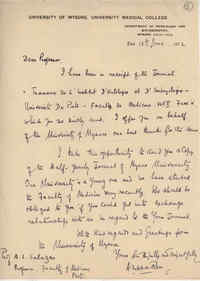 UNIVERSITY OF MYSORE, UNIVERSITY MEDICAL COLLEGE
DEPARTMENT OF PHYSIOLOGY AND
BIOCHEMISTRY,
MYSORE
June
Dear Professor
I have been in receipt of the Journal
Travaux de l'Institut d'Histologie et D'Embryologie
Université du Porto - Faculté de Médicine
you so kindly send. I offer you on behalf
of the University of Mysore our best thanks for the same
I take this opportunity to send you a copy
of the Half-yearly Journal of Mysore University
Our University is a young one and we have started
the Faculty of Medicine very recently. We should be
obliged to you if you could get into exchange
relationship with us in regard to the your Journal
With kind regards and greetings from
the University of Mysore
Prof A. L. Salazar
Professor, Faculty of Medicine
Porto